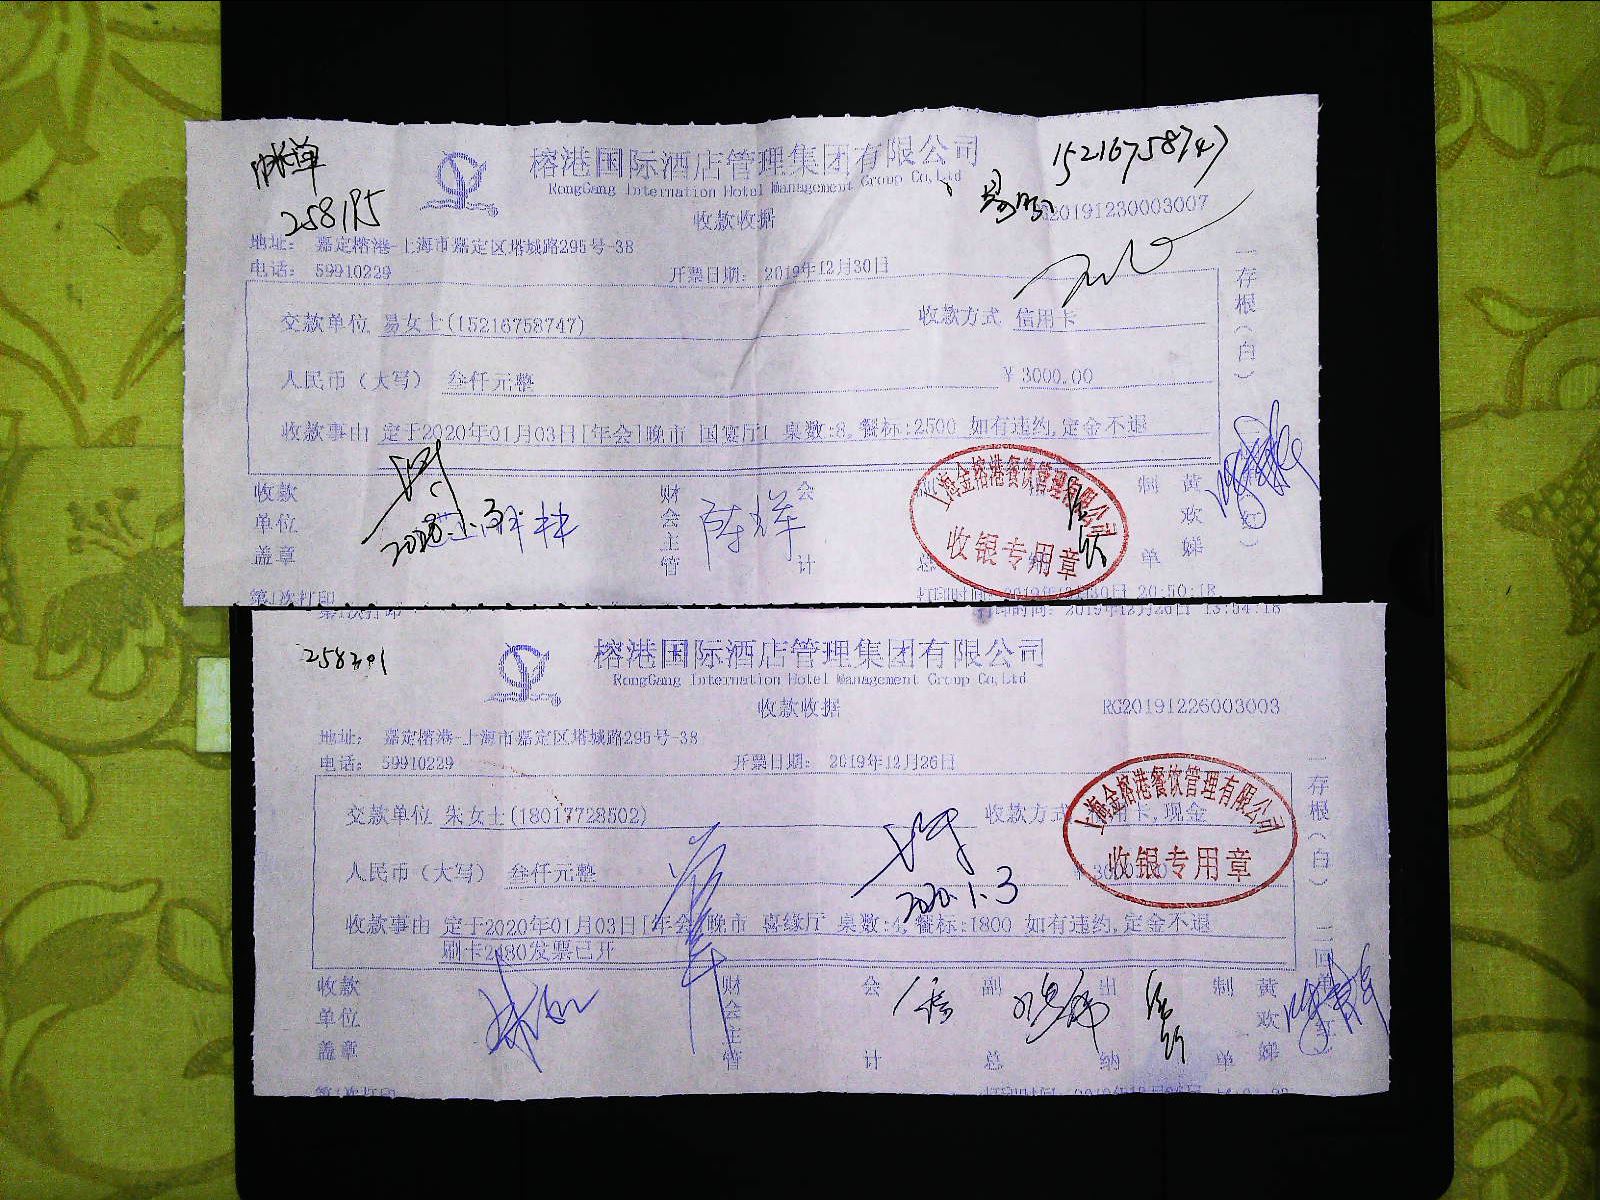 258195
榕港国际酒店管理集团有限公司
RongGang Internation Hotel Management Group Co,Ltd
15216758747
收款收据
20191230003007
地址: 嘉定榕港-上海市嘉定区塔城路295号-38
电话: 59910229
开票日期: 2019年12月30日
一存根(白)
交款单位 易女士(15216758747)
收款方式 信用卡
人民币(大写) 叁仟元整
¥ 3000.00
收款事由 定于2020年01月03日[年会]晚市 国宴厅] 桌数:8,餐标:2500 如有违约,定金不退
收款单位盖章
2020.1.3
财会主管
会计
上海金榕港餐饮管理有限公司
收银专用章
制单
黄欢娣
第1次打印
20:50:18
打印时间: 2019年12月26日 13:54:18
258201
榕港国际酒店管理集团有限公司
RongGang Internation Hotel Management Group Co,Ltd
收款收据
RG20191226003003
地址: 嘉定榕港-上海市嘉定区塔城路295号-38
电话: 59910229
开票日期: 2019年12月26日
一存根(白)
交款单位 朱女士(18017728502)
收款方式 信用卡,现金
上海金榕港餐饮管理有限公司
收银专用章
人民币(大写) 叁仟元整
2020.1.3
收款事由 定于2020年01月03日[年会]晚市 喜缘厅 桌数:4,餐标:1800 如有违约,定金不退
刷卡2480发票已开
收款单位盖章
财会主管
会计
副总
出纳
制单
黄欢娣
第1次打印